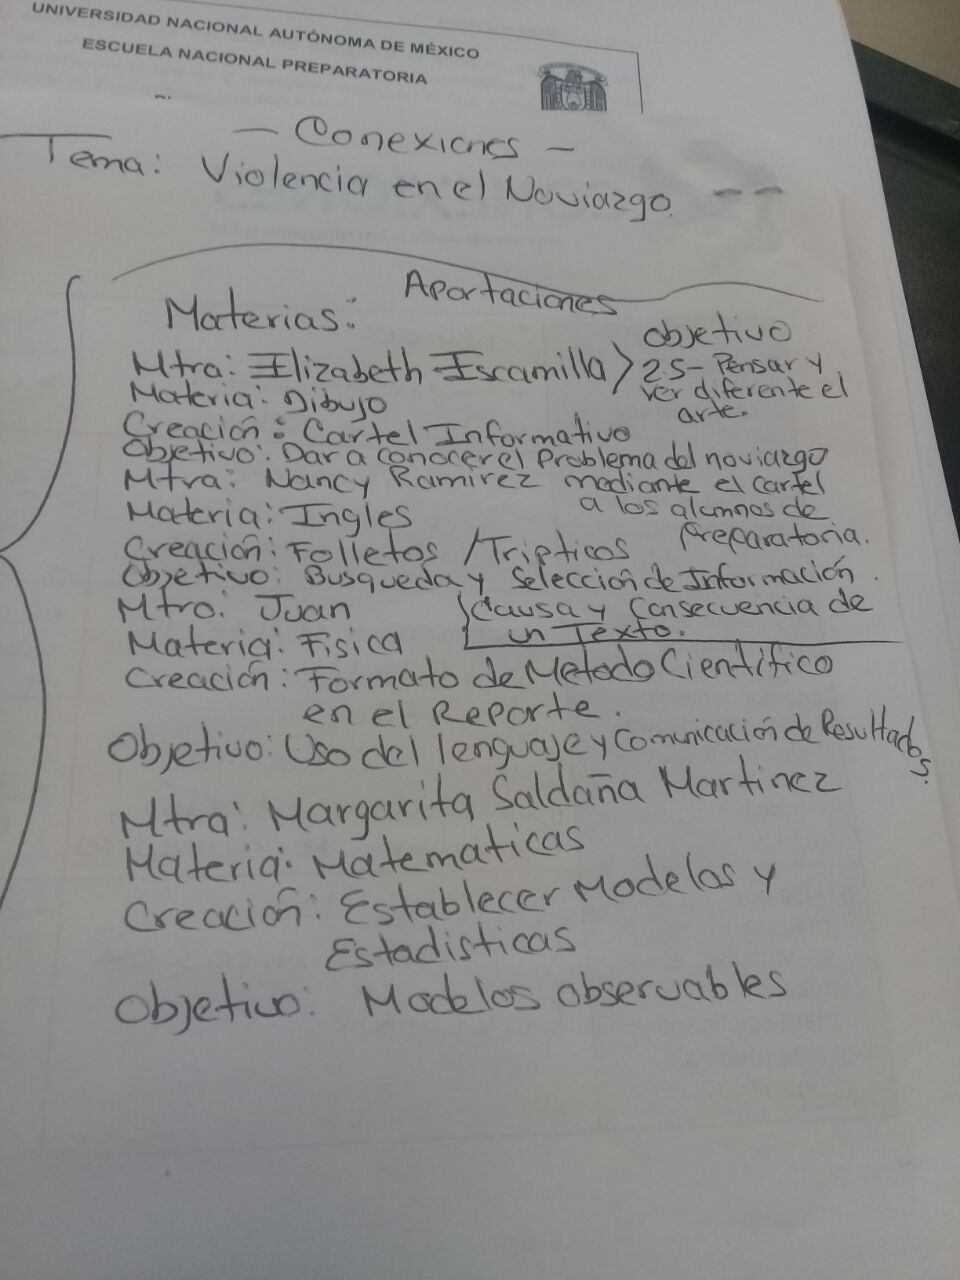 UNIVERSIDAD NACIONAL AUTÓNOMA DE MÉXICO
ESCUELA NACIONAL PREPARATORIA
- Conexiones -
Tema: Violencia en el Noviazgo.
Aportaciones
Materias:
Objetivo
Mtra: Elizabeth Escamilla > 2.5- Pensar y
ver diferente el
arte.
Materia: Dibujo
Creación: Cartel Informativo
Objetivo: Dar a conocer el Problema del noviazgo
mediante el cartel
a los alumnos de
Preparatoria.
Mtra: Nancy Ramirez
Materia: Ingles
Creación: Folletos / Tripticos
Objetivo: Busqueda y Selección de Información.
Causa y Consecuencia de
un Texto.
Mtro: Juan
Materia: Fisica
Creación: Formato de Metodo Científico
en el Reporte.
Objetivo: Uso del lenguaje y Comunicación de Resultados.
Mtra: Margarita Saldaña Martinez
Materia: Matematicas
Creación: Establecer Modelos y
Estadisticas
Objetivo: Modelos observables